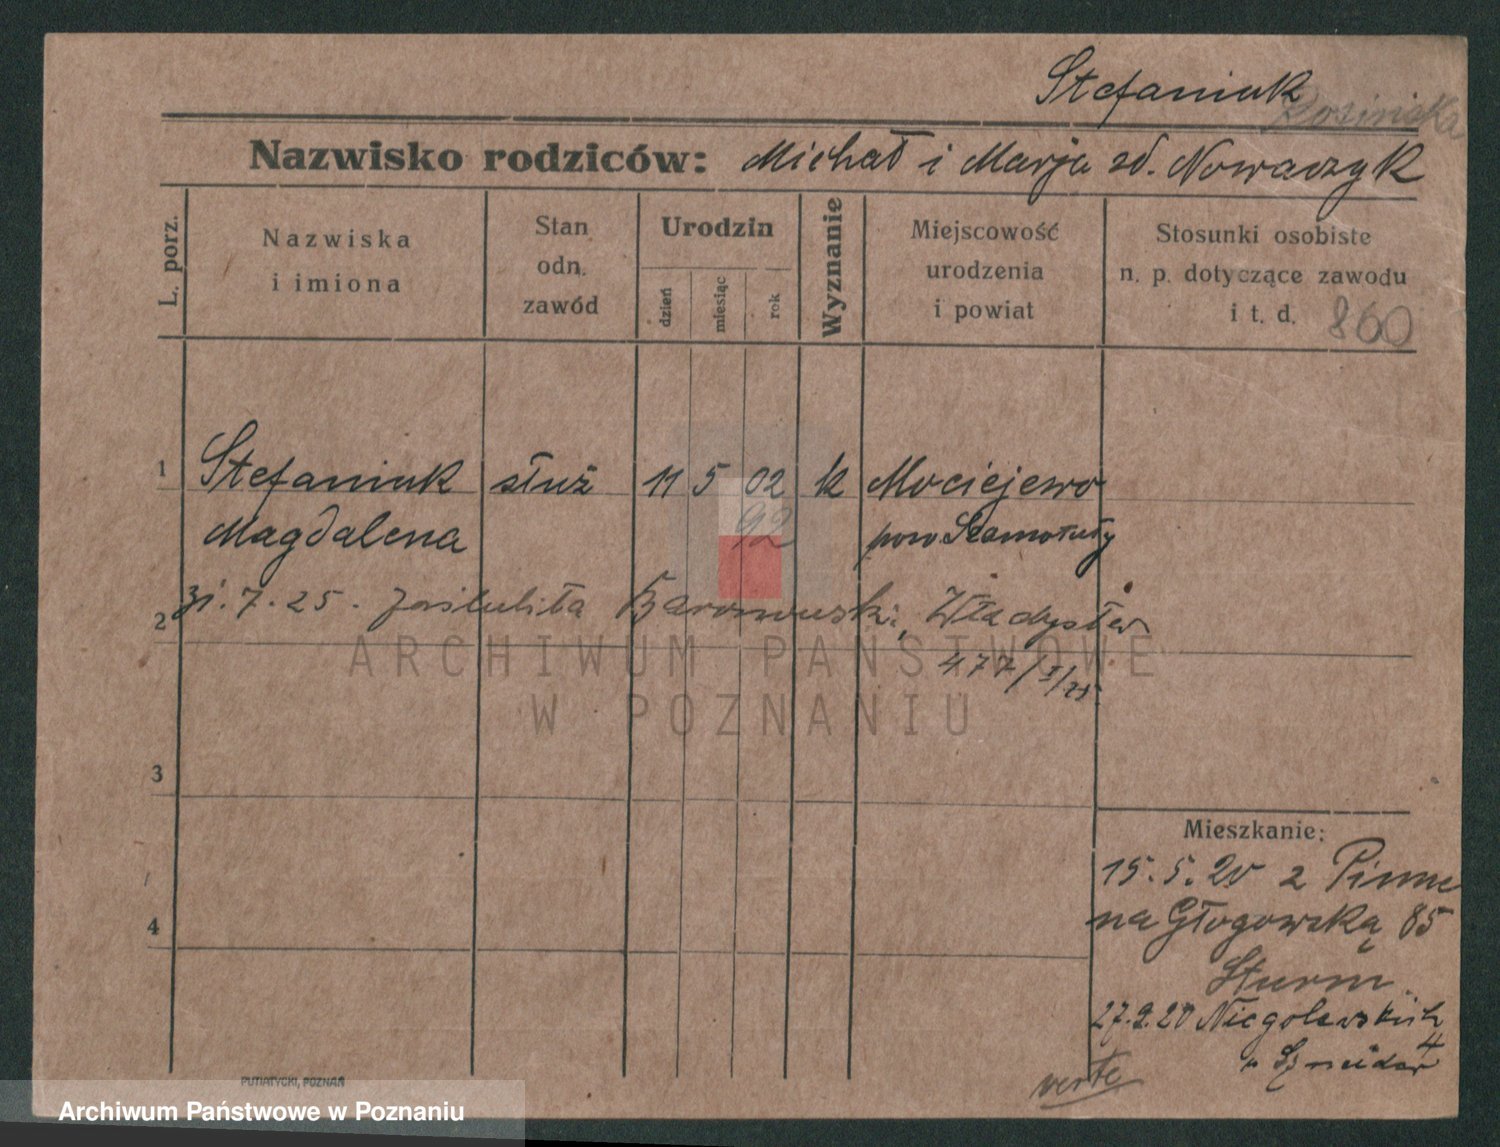 Stefaniuk
Rosinska
Nazwisko rodziców: Michał i Marja zd. Nowaczyk
L. porz.
Nazwiska
i imiona
Stan
odn.
zawód
Urodzin
dzień
miesiąc
rok
Wyznanie
Miejscowość
urodzenia
i powiat
Stosunki osobiste
n. p. dotyczące zawodu
i t. d. 860
1 Stefaniuk służ 11 5 02 k Mociejewo
Magdalena 92 pow Szamotuły
2 31.7.25. zaślubiła Władysław
477/I/25.
ARCHIWUM PAŃSTWOWE
W POZNANIU
3
4
Mieszkanie:
15.5.20 z Pinne
na Głogowską 85
Sturm
27.9.20 Niegolewskich
4
verte
PUTIATYCKI, POZNAŃ
Archiwum Państwowe w Poznaniu